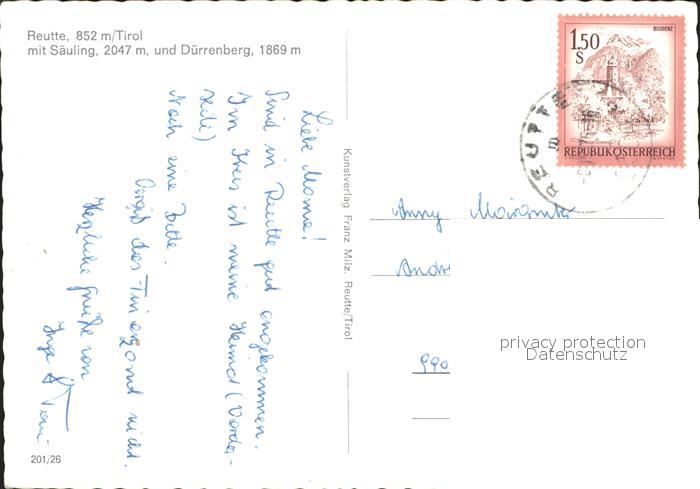 Reutte, 852 m/Tirol
mit Säuling, 2047 m, und Dürrenberg, 1869 m
Liebe Mama!
Sind in Reutte gut angekommen.
Im Kreis ist meine Heimat (Vorder-
seite)
Noch eine Bitte.
Vergiß das nicht.
Herzliche Grüße von
Inge
201/26
Kunstverlag Franz Milz, Reutte/Tirol
BLUDENZ
1.50
S
REPUBLIK ÖSTERREICH
REUTTE
Anny
Andr
990
privacy protection
Datenschutz